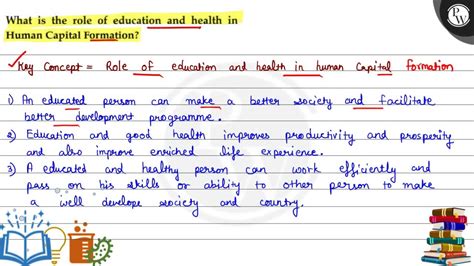 What is the role of education and health in
Human Capital Formation?
Key Concept = Role of education and health in human Capital formation
1) An educated person can make a better society and facilitate
better development programme.
2) Education and good health improves productivity and prosperity
and also improve enriched life experience.
3) A educated and healthy person can work efficiently and
pass on his skills or ability to other person to make
a well develope society and country.